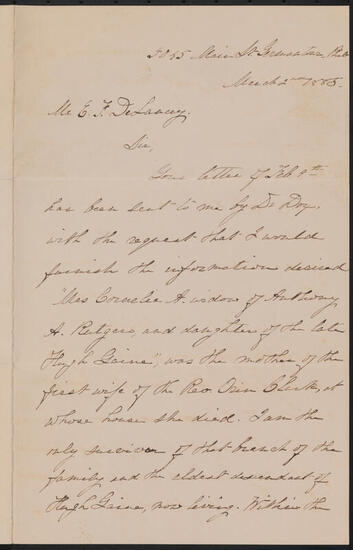 5055 Main St Germantown Phila
March 2nd 1886.
Mr E. F. DeLancey.
Sir,
Your letter of Feb 9th
has been sent to me by Dr Doy,
with the request that I would
furnish the information desired
"Mrs Cornelia A. widow of Anthony
A. Rutgers, and daughter of the late
Hugh Gaine", was the mother of the
first wife of the Rev. Orin Clark, at
whose house she died. I am the
only survivor of that branch of the
family and the eldest descendant of
Hugh Gaine, now living. Within the